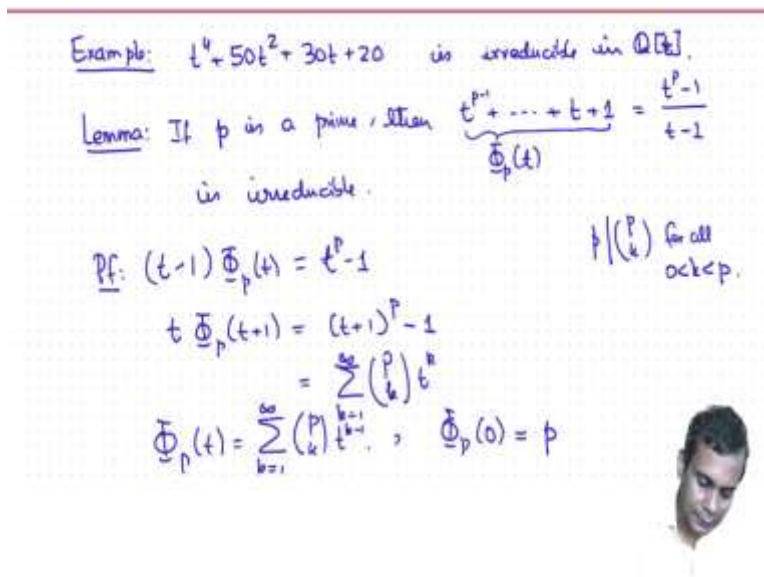 Example: t⁴ + 50t² + 30t + 20 is irreducible in ℚ[t].
Lemma: If p is a prime, then t^{p-1} + ... + t + 1 = (t^p - 1)/(t - 1)
Φ_p(t)
is irreducible.
p | (p k) for all
0<k<p.
Pf: (t-1) Φ_p(t) = t^p - 1
t Φ_p(t+1) = (t+1)^p - 1
= ∑_{k=1}^{∞} (p k) t^k
Φ_p(t) = ∑_{k=1}^{∞} (p k) t^{k-1}. , Φ_p(0) = p